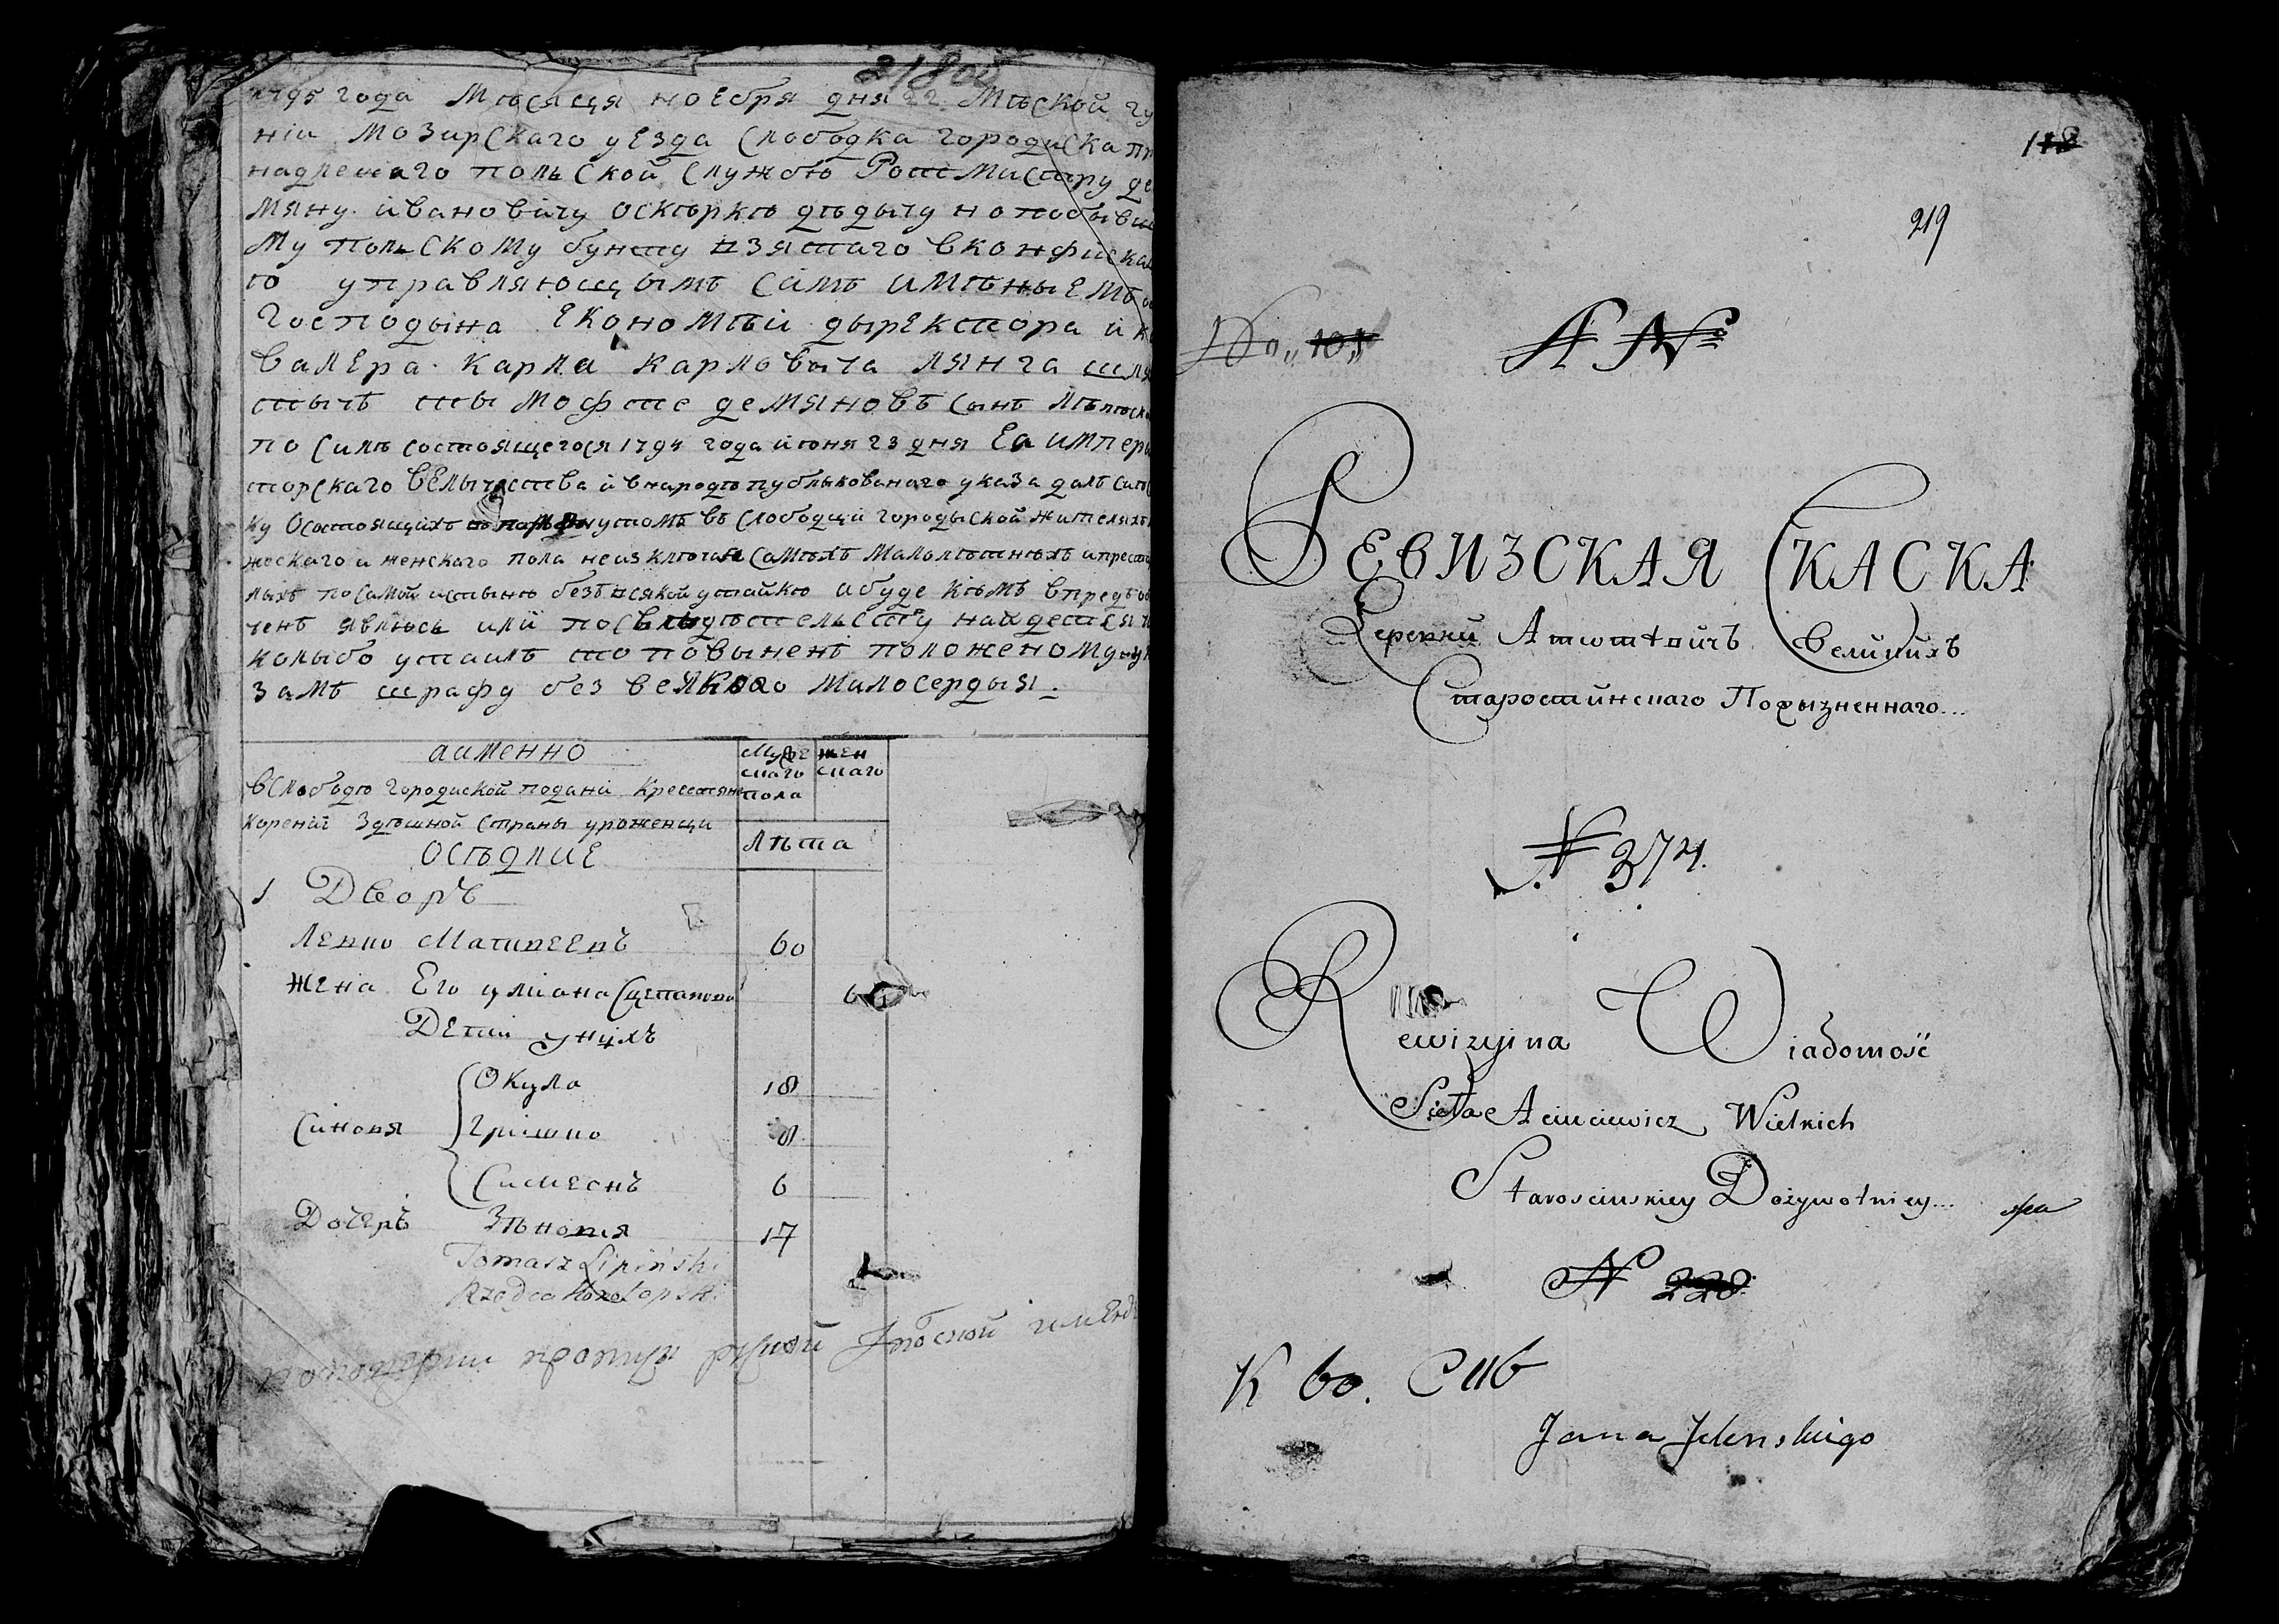 218об
1795 года Мѣсяця ноебря дня 22 Мѣской гу
ніи мозирскаго уезда Слободка городиска пр
надлешаго польской службѣ Ротмистру де
мяну ивановичу оскѣркѣ дѣдычу но побывше
му польскому бунту взятаго вконфиска
ю управляющымъ симъ имѣныемъ
Господына економѣіи дыректора и к
валера карла карловыча лянга шля
тычъ тымофте демяновъ сынъ
по силѣ состоящегося 1794 года июня 23 дня Еа импера
торскаго велычества и внародѣ публыкованаго указа далъ сию
ку Осостоящихъ устомъ въ слободци городыской жителяхъ
жескаго и женскаго пола неизключая самыхъ малолѣтныхъ ипреста
лыхъ посамой истынѣ безъ всякой утайкѣ абуде кѣмъ впредъ об
ченъ явлюсь или посвѣдѣтельству найдется
колыбо утаилъ то повыненъ положеному у
замъ шрафу без велкого милосердыя.
аименно
Мужескаго пола
женскаго
вСлободѣ Городиской подани крестяне
корении Здѣшной Страны уроженци
Лѣта
ОСѢДЛИЕ
1 Дворъ
Левко Матвеевъ 60
Жена Его улиана Сцепанова 6
Дети унихъ
Окула 18
Синовя Гришко 8
Симеонъ 6
Дочеръ Зѣновия 17
Tomasz Lipiński
118
219
No „101„
A №
РЕВИЗСКАЯ СКАСКА
Деревни Атютевичъ Великихъ
Старостинскаго Подызненнаго...
№ 374.
Rewizyina Wiadomość
Sioła Aciuciewicz Wielkich
Starościnskiey Dożywotniey...
№ 228
К 60. С 116
Jana Jelenskiego